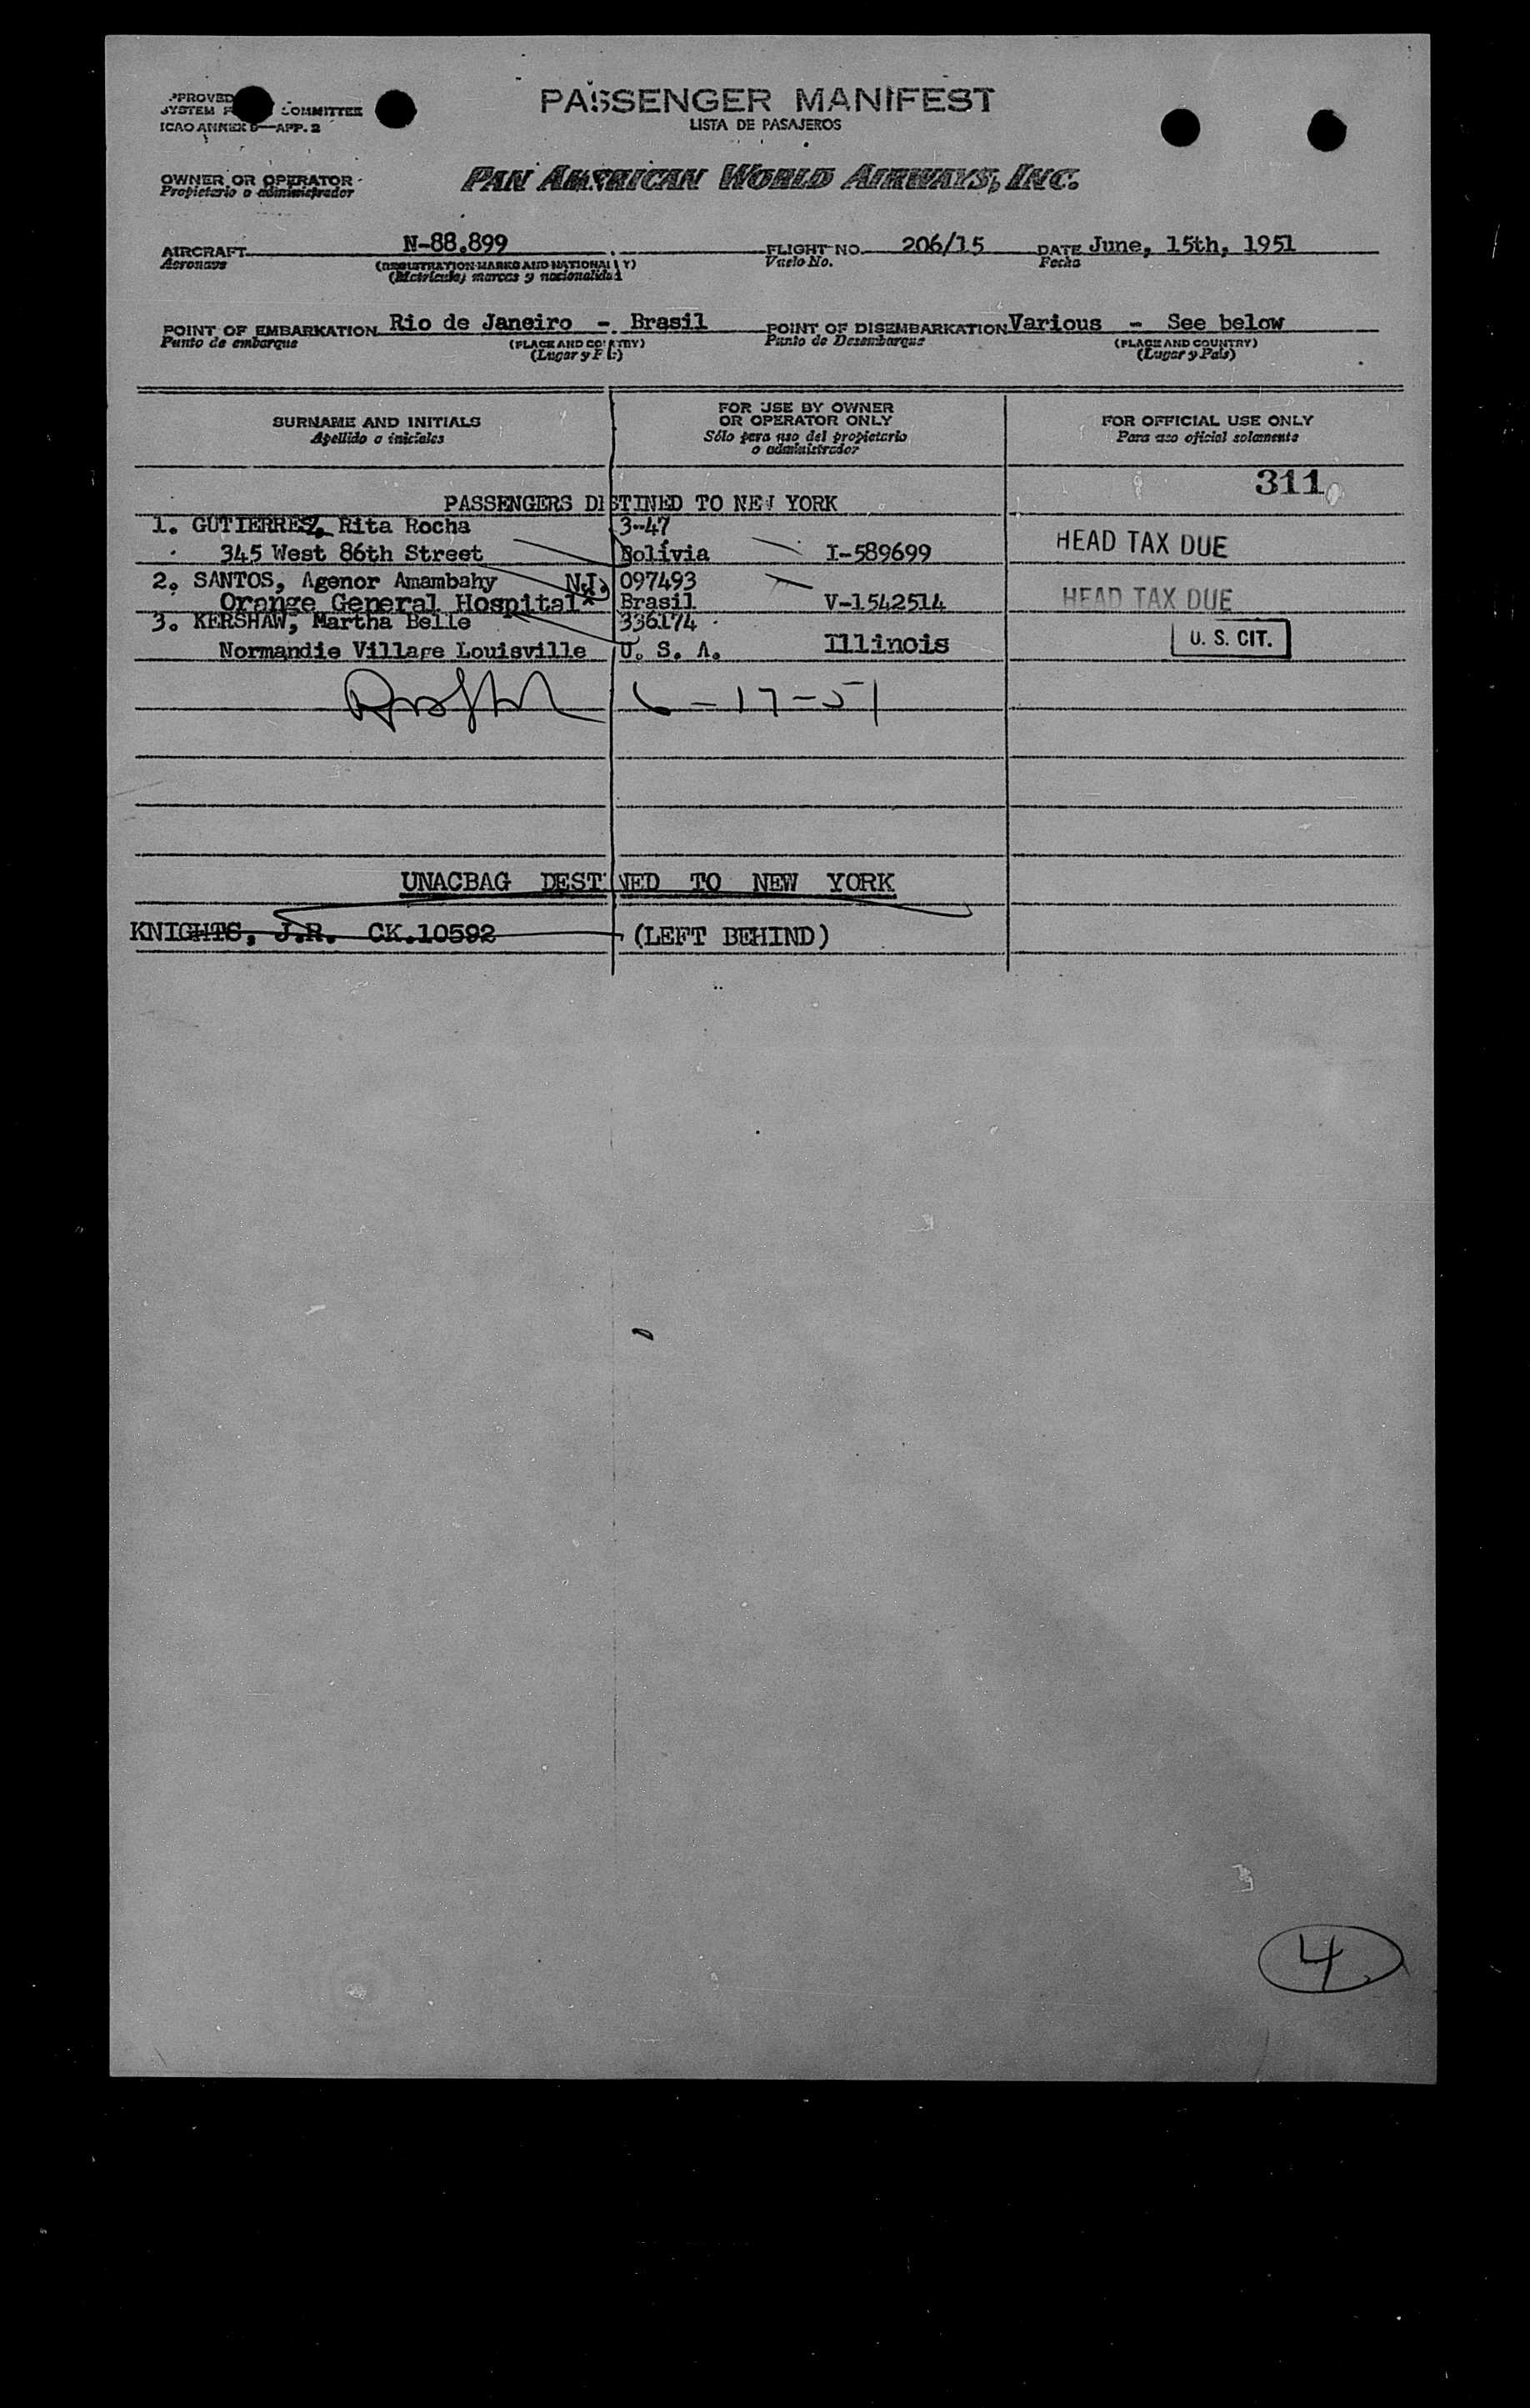 PASSENGER MANIFEST
LISTA DE PASAJEROS
APPROVED
SYSTEM COMMITTEE
ICAO ANNEX 9—APP. 2
OWNER OR OPERATOR
Propietario o administrador
PAN AMERICAN WORLD AIRWAYS, INC.
AIRCRAFT N-88.899 FLIGHT NO. 206/15 DATE June, 15th, 1951
Aeronave (REGISTRATION MARKS AND NATIONALITY) Vuelo No. Fecha
(Matrícula, marcas y nacionalidad)
POINT OF EMBARKATION Rio de Janeiro - Brasil POINT OF DISEMBARKATION Various - See below
Punto de embarque (PLACE AND COUNTRY) Punto de Desembarque (PLACE AND COUNTRY)
(Lugar y País) (Lugar y País)
SURNAME AND INITIALS
Apellido o iniciales
FOR USE BY OWNER
OR OPERATOR ONLY
Sólo para uso del propietario
o administrador
FOR OFFICIAL USE ONLY
Para uso oficial solamente
311
PASSENGERS DISTINED TO NEW YORK
1. GUTIERREZ, Rita Rocha 3-47
345 West 86th Street Bolívia I-589699 HEAD TAX DUE
2. SANTOS, Agenor Amambahy N.J. 097493
Orange General Hospital* Brasil V-1542514 HEAD TAX DUE
3. KERSHAW, Martha Belle 336174
Normandie Village Louisville U. S. A. Illinois U. S. CIT.
6-17-51
UNACBAG DESTINED TO NEW YORK
KNIGHTS, J.R. CK.10592 (LEFT BEHIND)
4